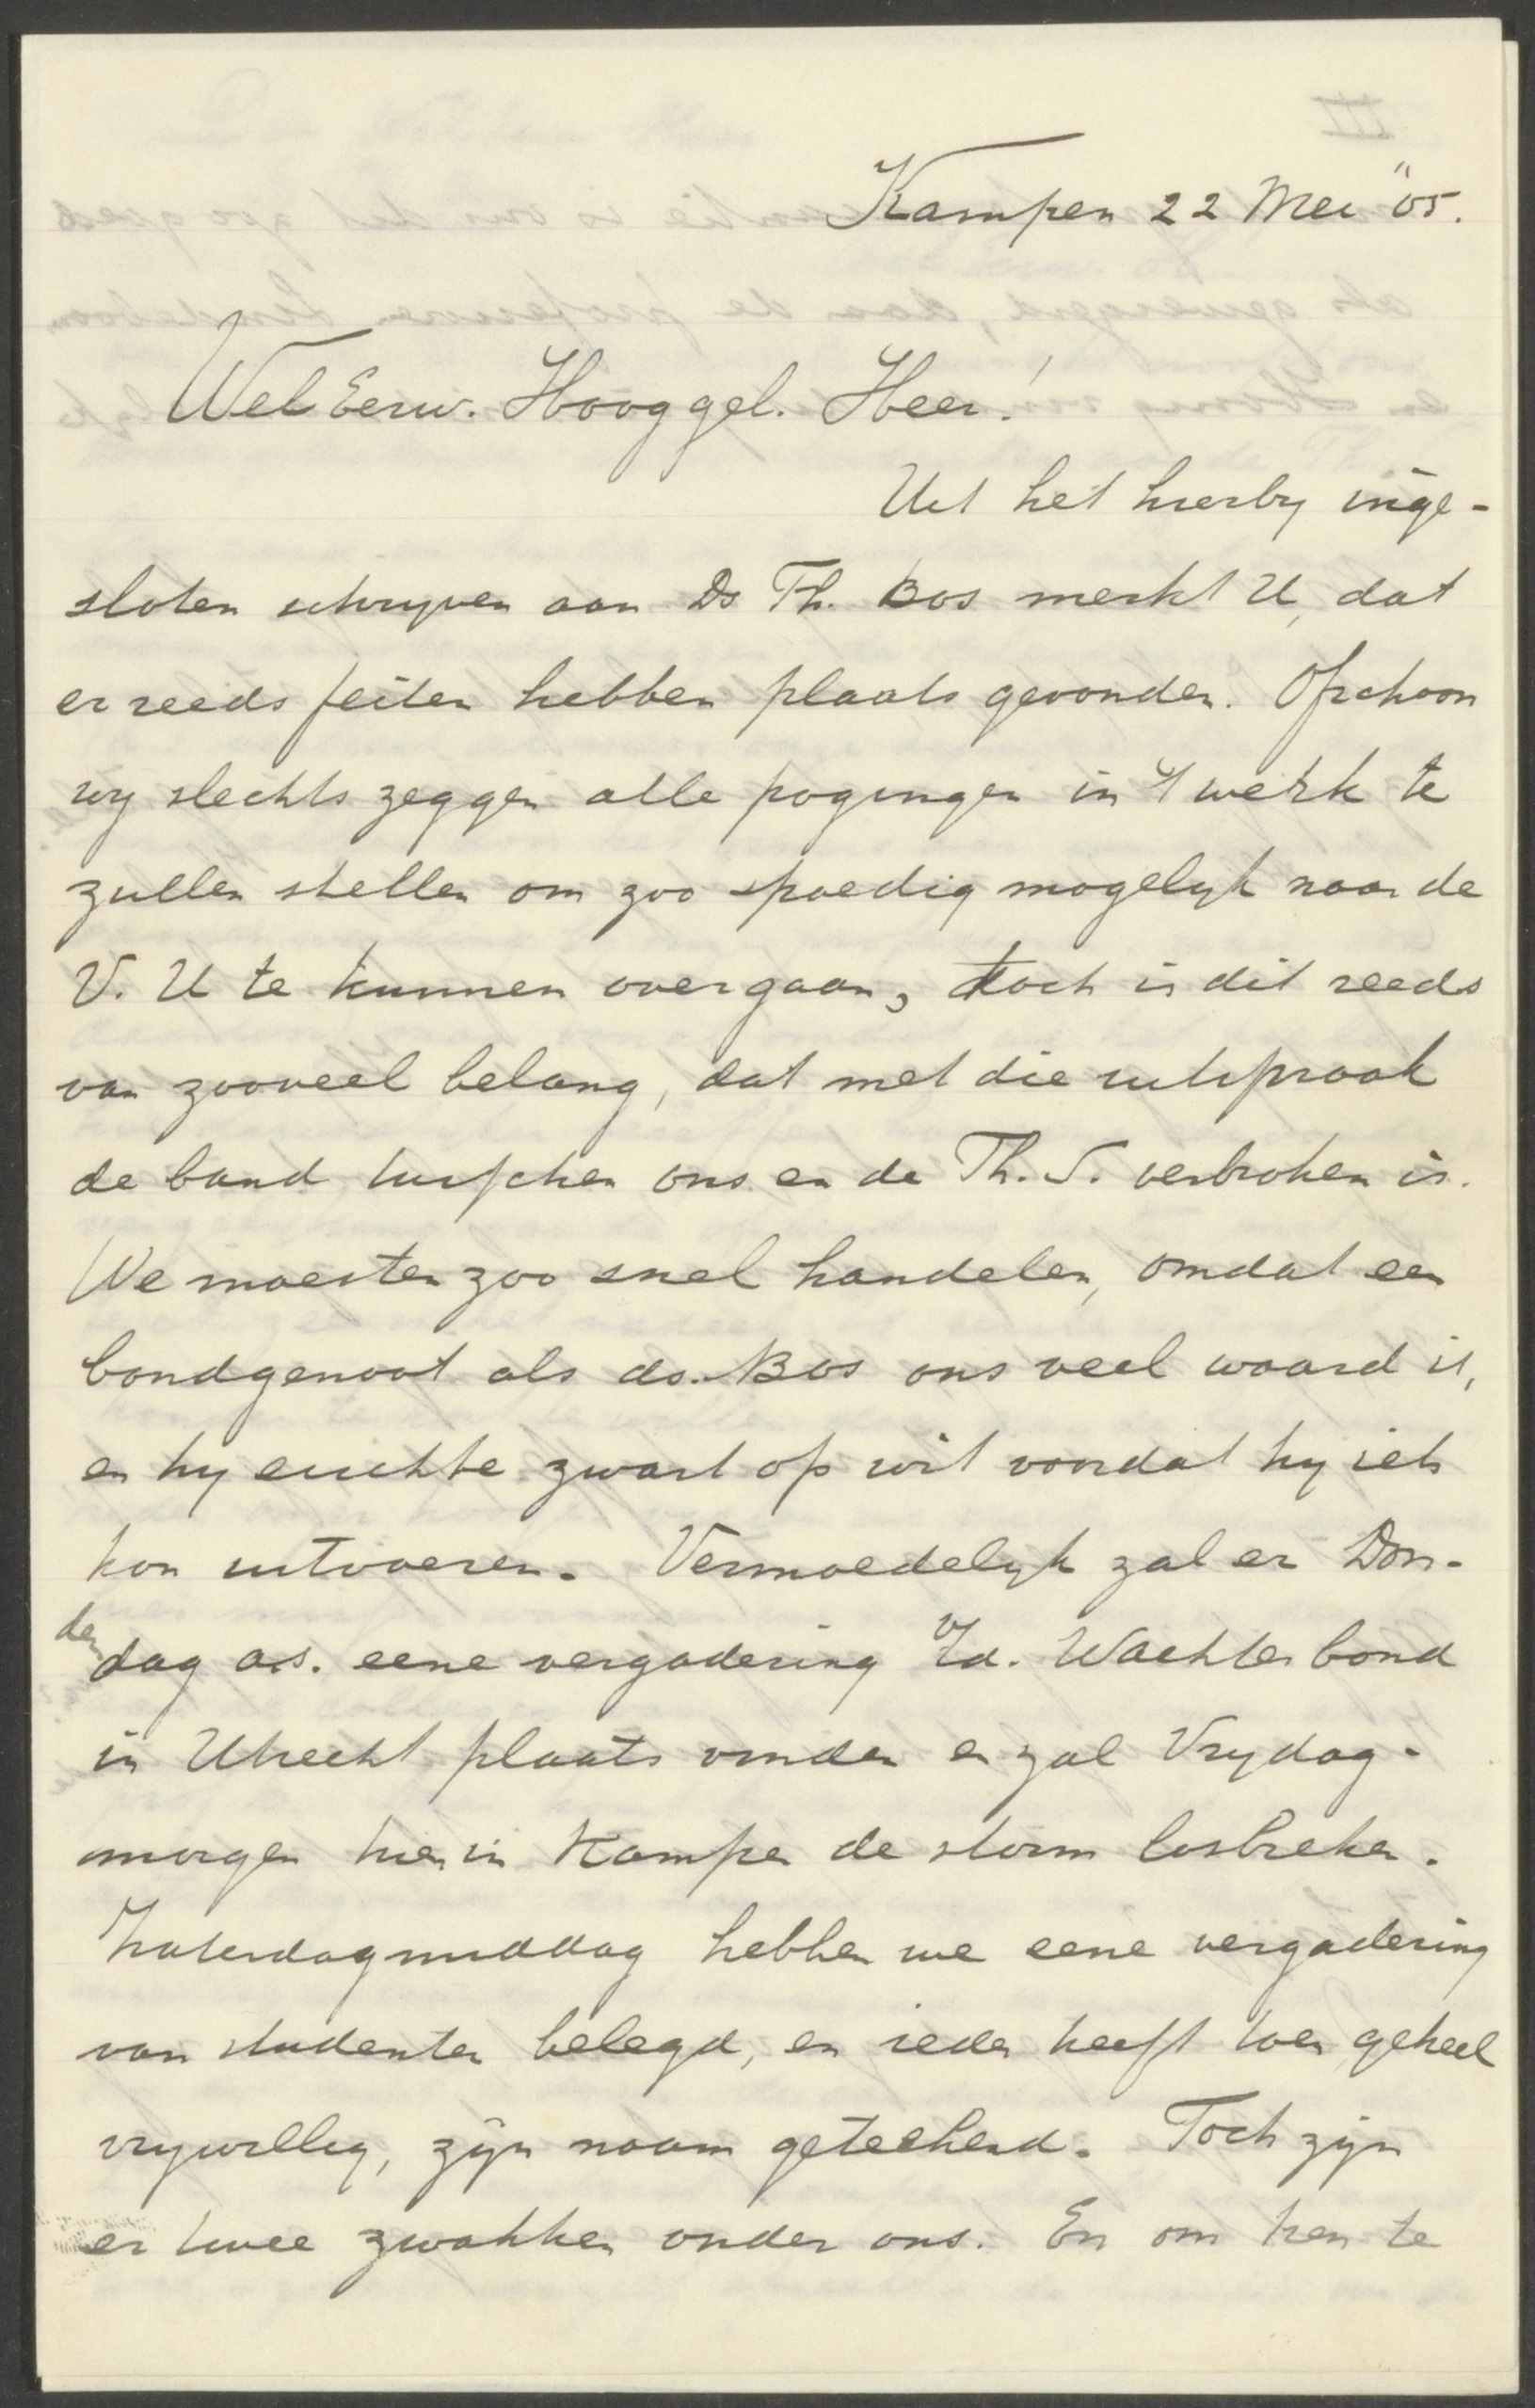 Kampen 22 Mei "05.
WelEerw. Hooggel. Heer!
Uit het hierby inge-
sloten schryven aan Ds Th. Bos merkt U, dat
er reeds feiten hebben plaats gevonden. Ofschoon
wy slechts zeggen alle pogingen in 't werk te
zullen stellen om zoo spoedig mogelyk naar de
V. U te kunnen overgaan, toch is dit reeds
van zooveel belang, dat met die uitspraak
de band tusschen ons en de Th. S. verbroken is.
We moesten zoo snel handelen, omdat een
bondgenoot als ds. Bos ons veel waard is,
en hy eischte zwart op wit voordat hy iets
kon uitvoeren. Vermoedelyk zal er Don-
derdag a.s. eene vergadering v/d. Wachterbond
in Utrecht plaats vinden en zal Vrydag-
morgen hier in Kampen de storm losbreken.
Zaterdagmiddag hebben we eene vergadering
van studenten belegd, en ieder heeft toen, geheel
vrywillig, zyn naam geteekend. Toch zyn
er twee zwakken onder ons. En om hen te